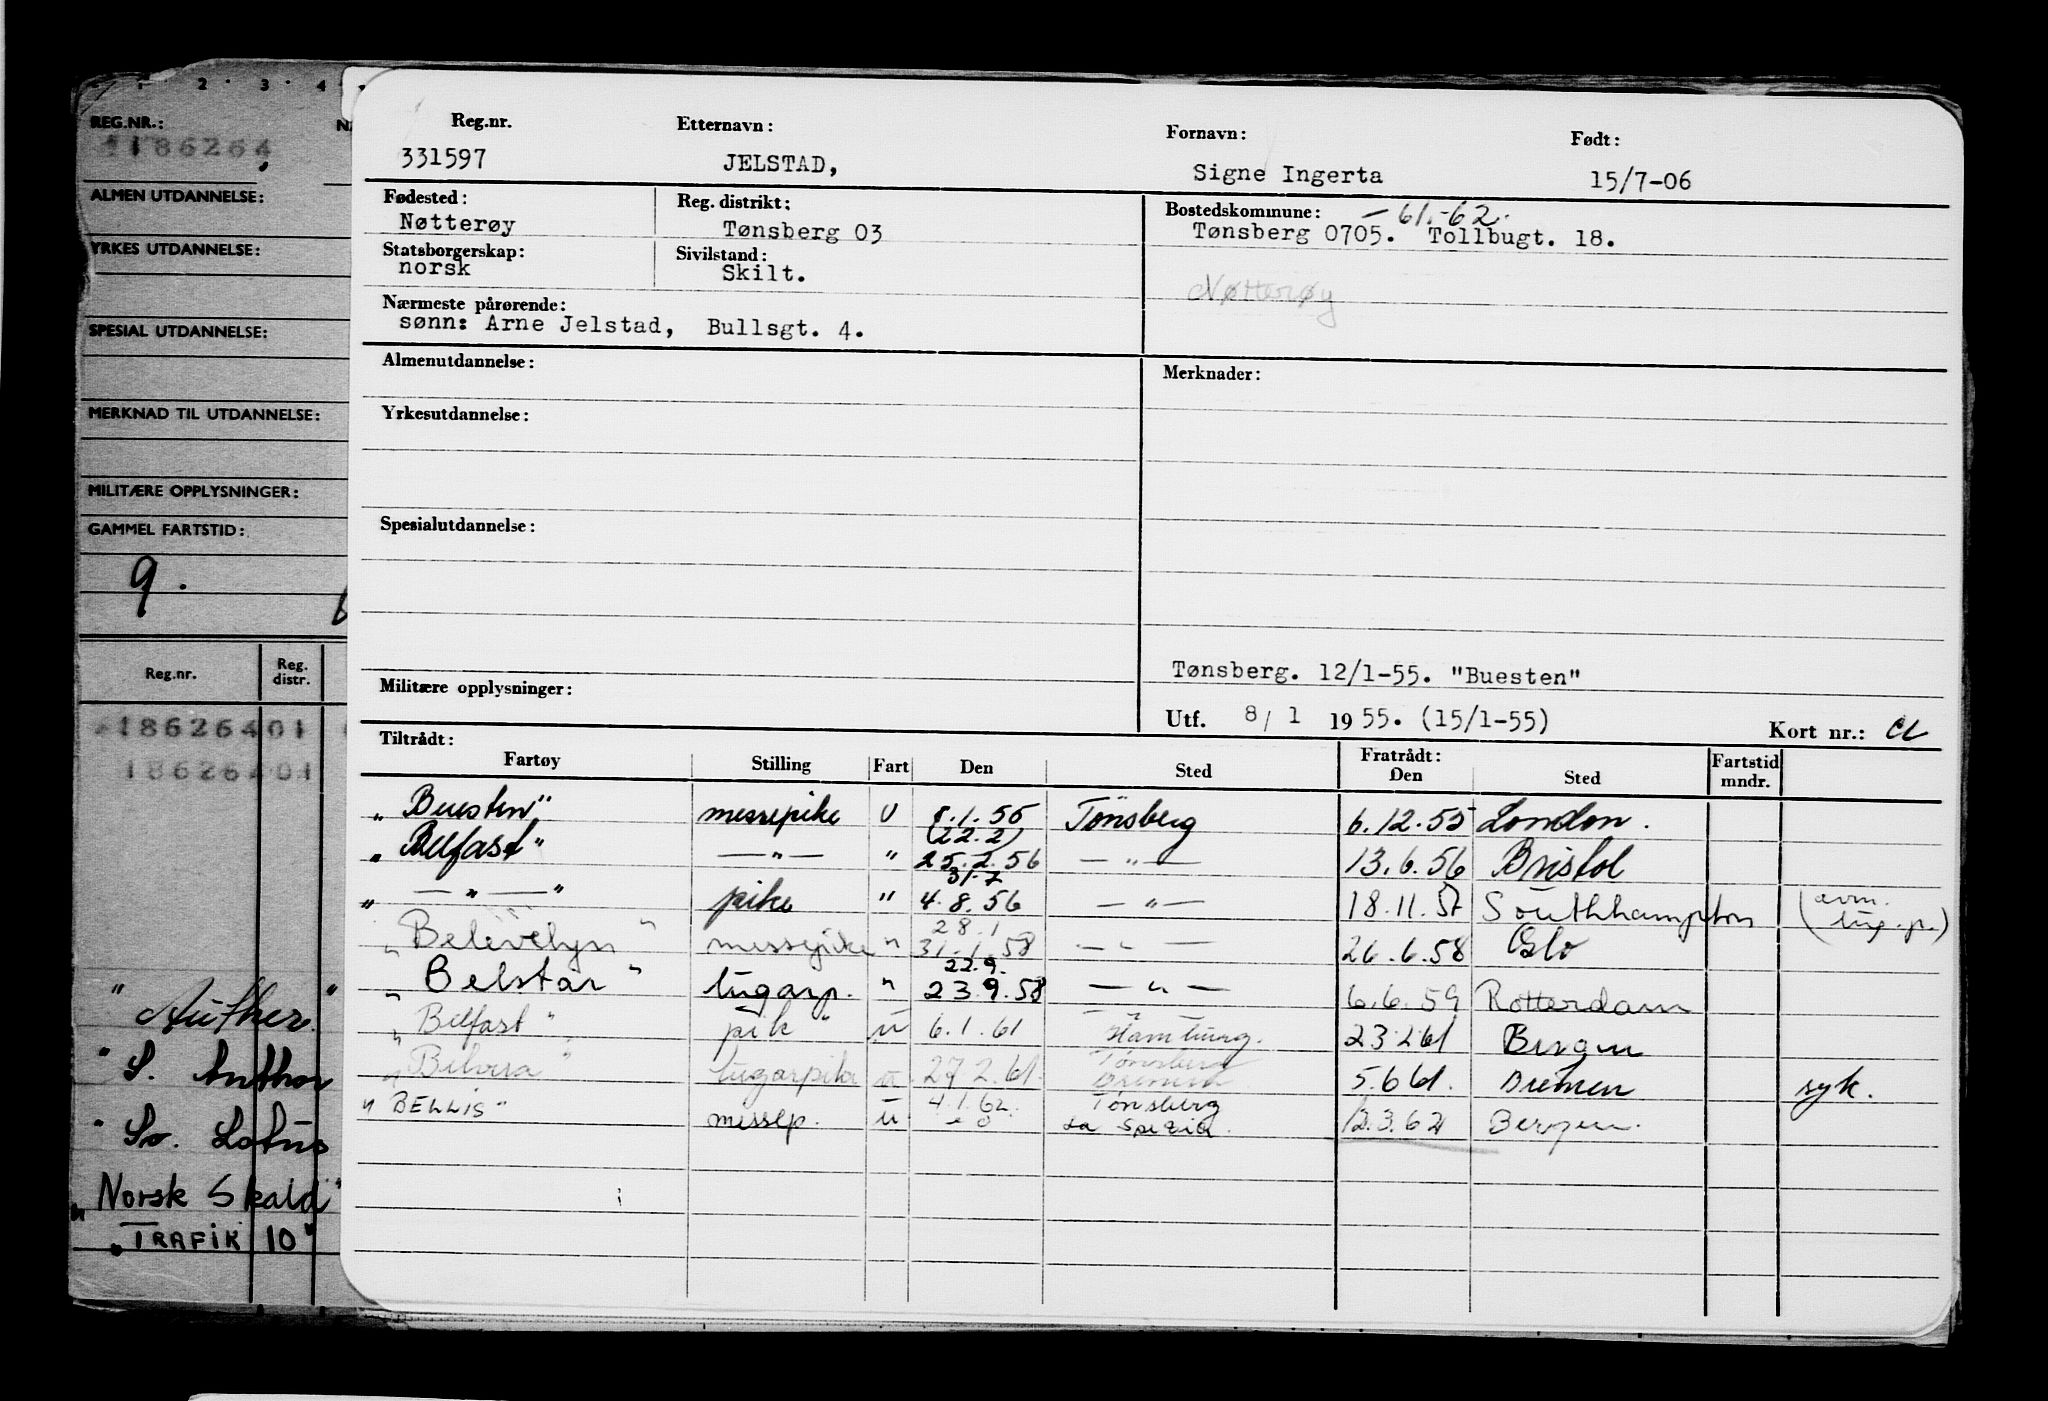 1 2 3 4
REG.NR.:
186264
ALMEN UTDANNELSE:
YRKES UTDANNELSE:
SPESIAL UTDANNELSE:
MERKNAD TIL UTDANNELSE:
MILITÆRE OPPLYSNINGER:
GAMMEL FARTSTID:
9.
Reg.nr. Reg. distr.
18626401
18626401
" Author "
" S. Anthor
" So. Lotus
"Norsk Skald"
"TRAFIK 10"
Reg.nr. Etternavn: Fornavn: Født:
331597 JELSTAD, Signe Ingerta 15/7-06
Fødested: Reg. distrikt: Bostedskommune: — 61.-62.
Nøtterøy Tønsberg 03 Tønsberg 0705. Tollbugt. 18.
Statsborgerskap: Sivilstand:
norsk Skilt.
Nøtterøy
Nærmeste pårørende:
sønn: Arne Jelstad, Bullsgt. 4.
Almenutdannelse: Merknader:
Yrkesutdannelse:
Spesialutdannelse:
Tønsberg. 12/1-55. "Buesten"
Militære opplysninger:
Utf. 8/1 1955. (15/1-55) Kort nr.:
Tiltrådt: Fratrådt:
Fartøy Stilling Fart Den Sted Den Sted Fartstid mndr.
"Buesten" messepike U 8.1.55 Tönsberg 6.12.55 London.
(22.2)
"Belfast" —"— " 25.2.56 —"— 13.6.56 Bristol
31.7
" —"— " pike " 4.8.56 —"— 18.11.57 Southhampton (avm. tug.p.)
28.1
"Belevelyn" messepike " 31.1.58 —"— 26.6.58 Oslo
22.9.
"Belstar" lugarp. " 23.9.58 —"— 6.6.59 Rotterdam
"Belfast" pik " u 6.1.61 Hamburg. 23.2.61 Bergen
Tønsberg
"Belvera" lugarpike u 27.2.61. Bremen 5.6.61. Bremen syk.
"BELLIS" 4.1.62. Tønsberg
messep. u La Spezia. 12.3.62 Bergen.